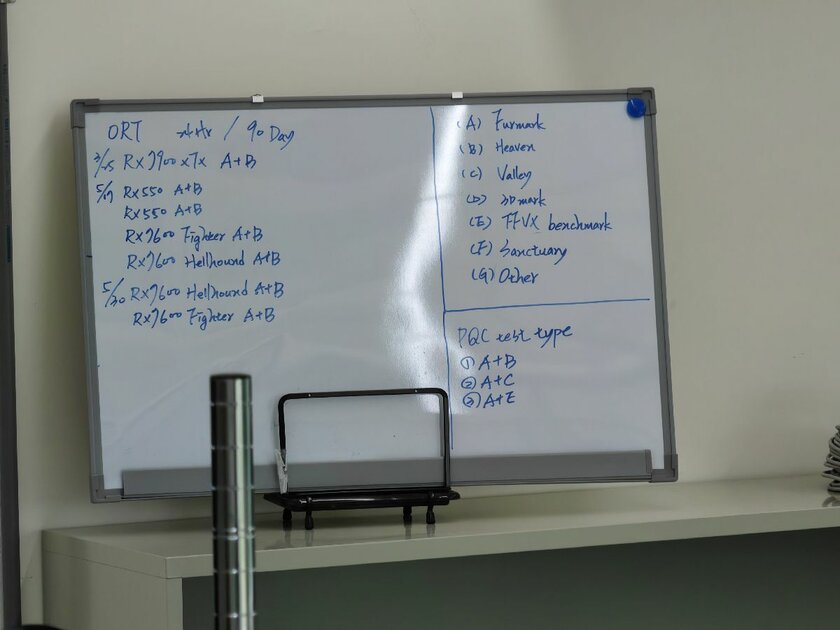 ORT 24Hr / 90 Day
3/25 RX7900XTX A+B
5/17 RX550 A+B
RX550 A+B
RX7600 Fighter A+B
RX7600 Hellhound A+B
5/30 RX7600 Hellhound A+B
RX7600 Fighter A+B
(A) Furmark
(B) Heaven
(C) Valley
(D) 3Dmark
(E) FFVX benchmark
(F) Sanctuary
(G) Other
PQC test type
① A+B
② A+C
③ A+E